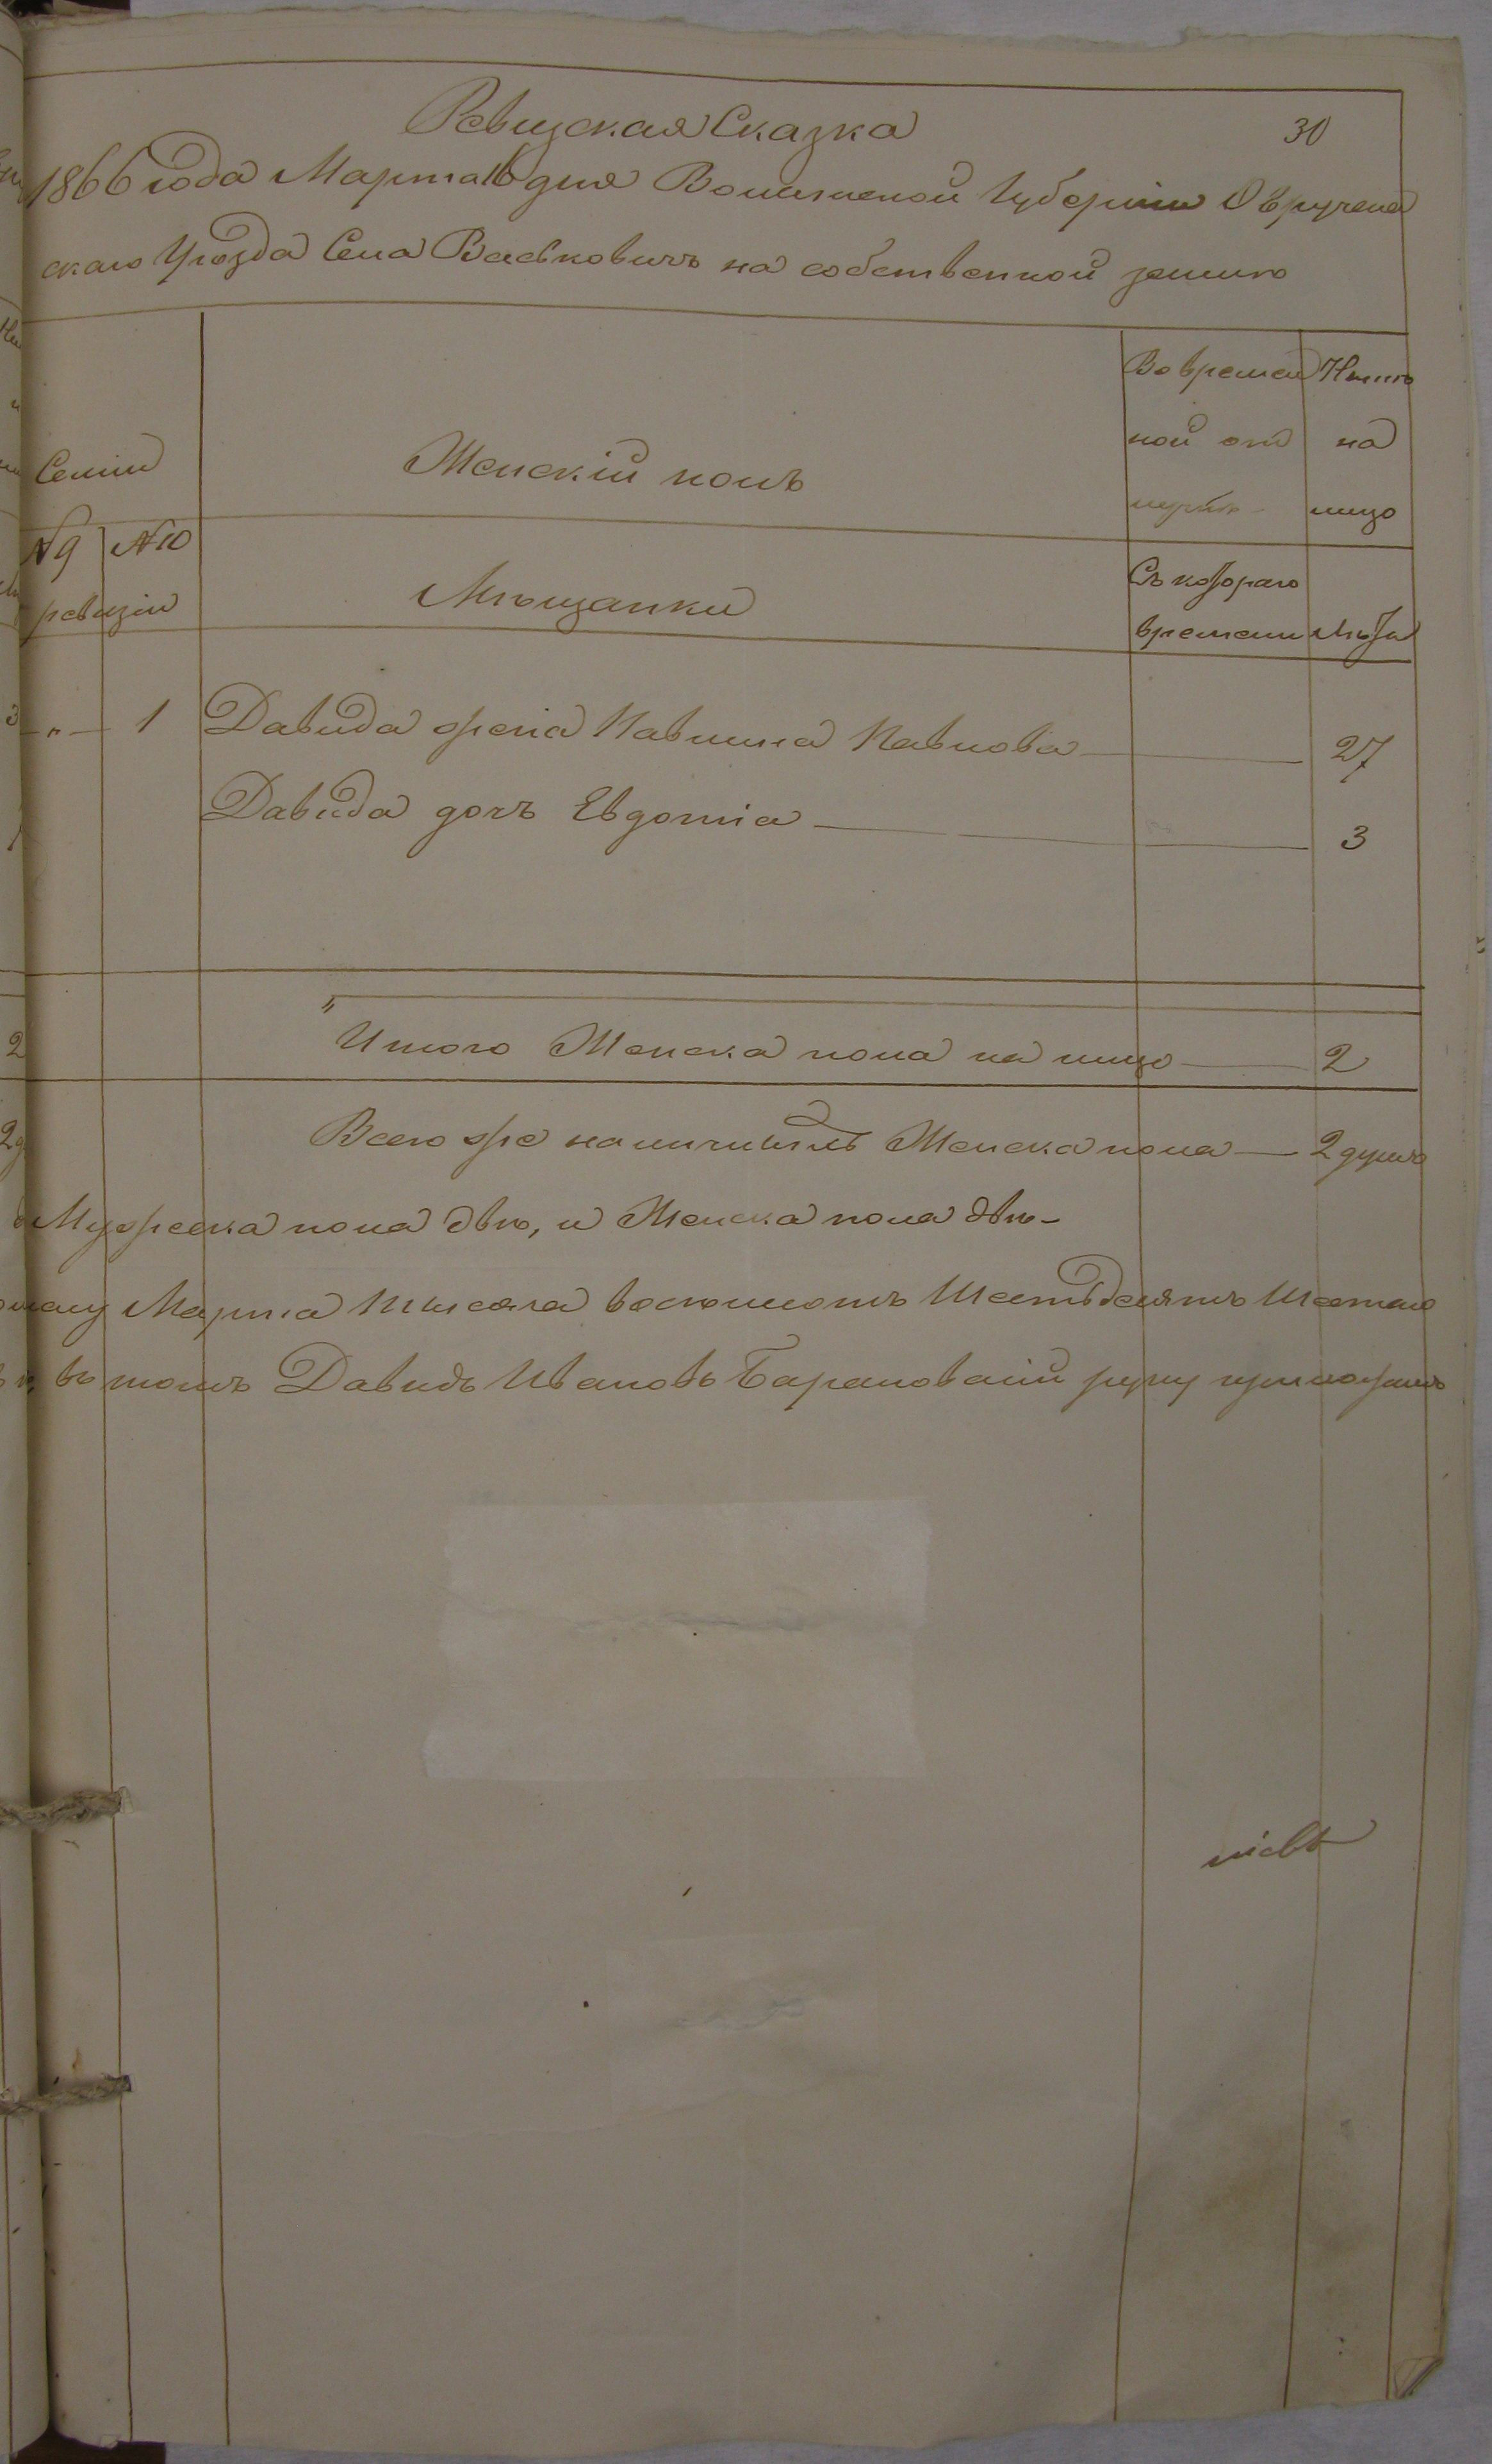 Ревизская Сказка
30
1866 года Марта 16 дня Волынской Губерніи Овручска
скаго Уѣзда Села Васьковичъ на собственной землѣ
Семіи
Женскій полъ
Во времен
ной от
лучкѣ
Нынѣ
на
лицо
№ 9
№ 10
ревизіи
Мѣщанки
Съ котораго
времени
лѣта
„ 1 Давида жена Павлина Павлова 27
Давида дочь Евдокіа 3
Итого Женска пола на лицо 2
Всего же наличныхъ Женска пола — 2 душъ
Мужеска пола двѣ, и Женска пола двѣ
Марта Тысяча восемьсотъ Шестьдесятъ Шестаго
въ томъ Давидъ Ивановъ Барановскій руку приложилъ